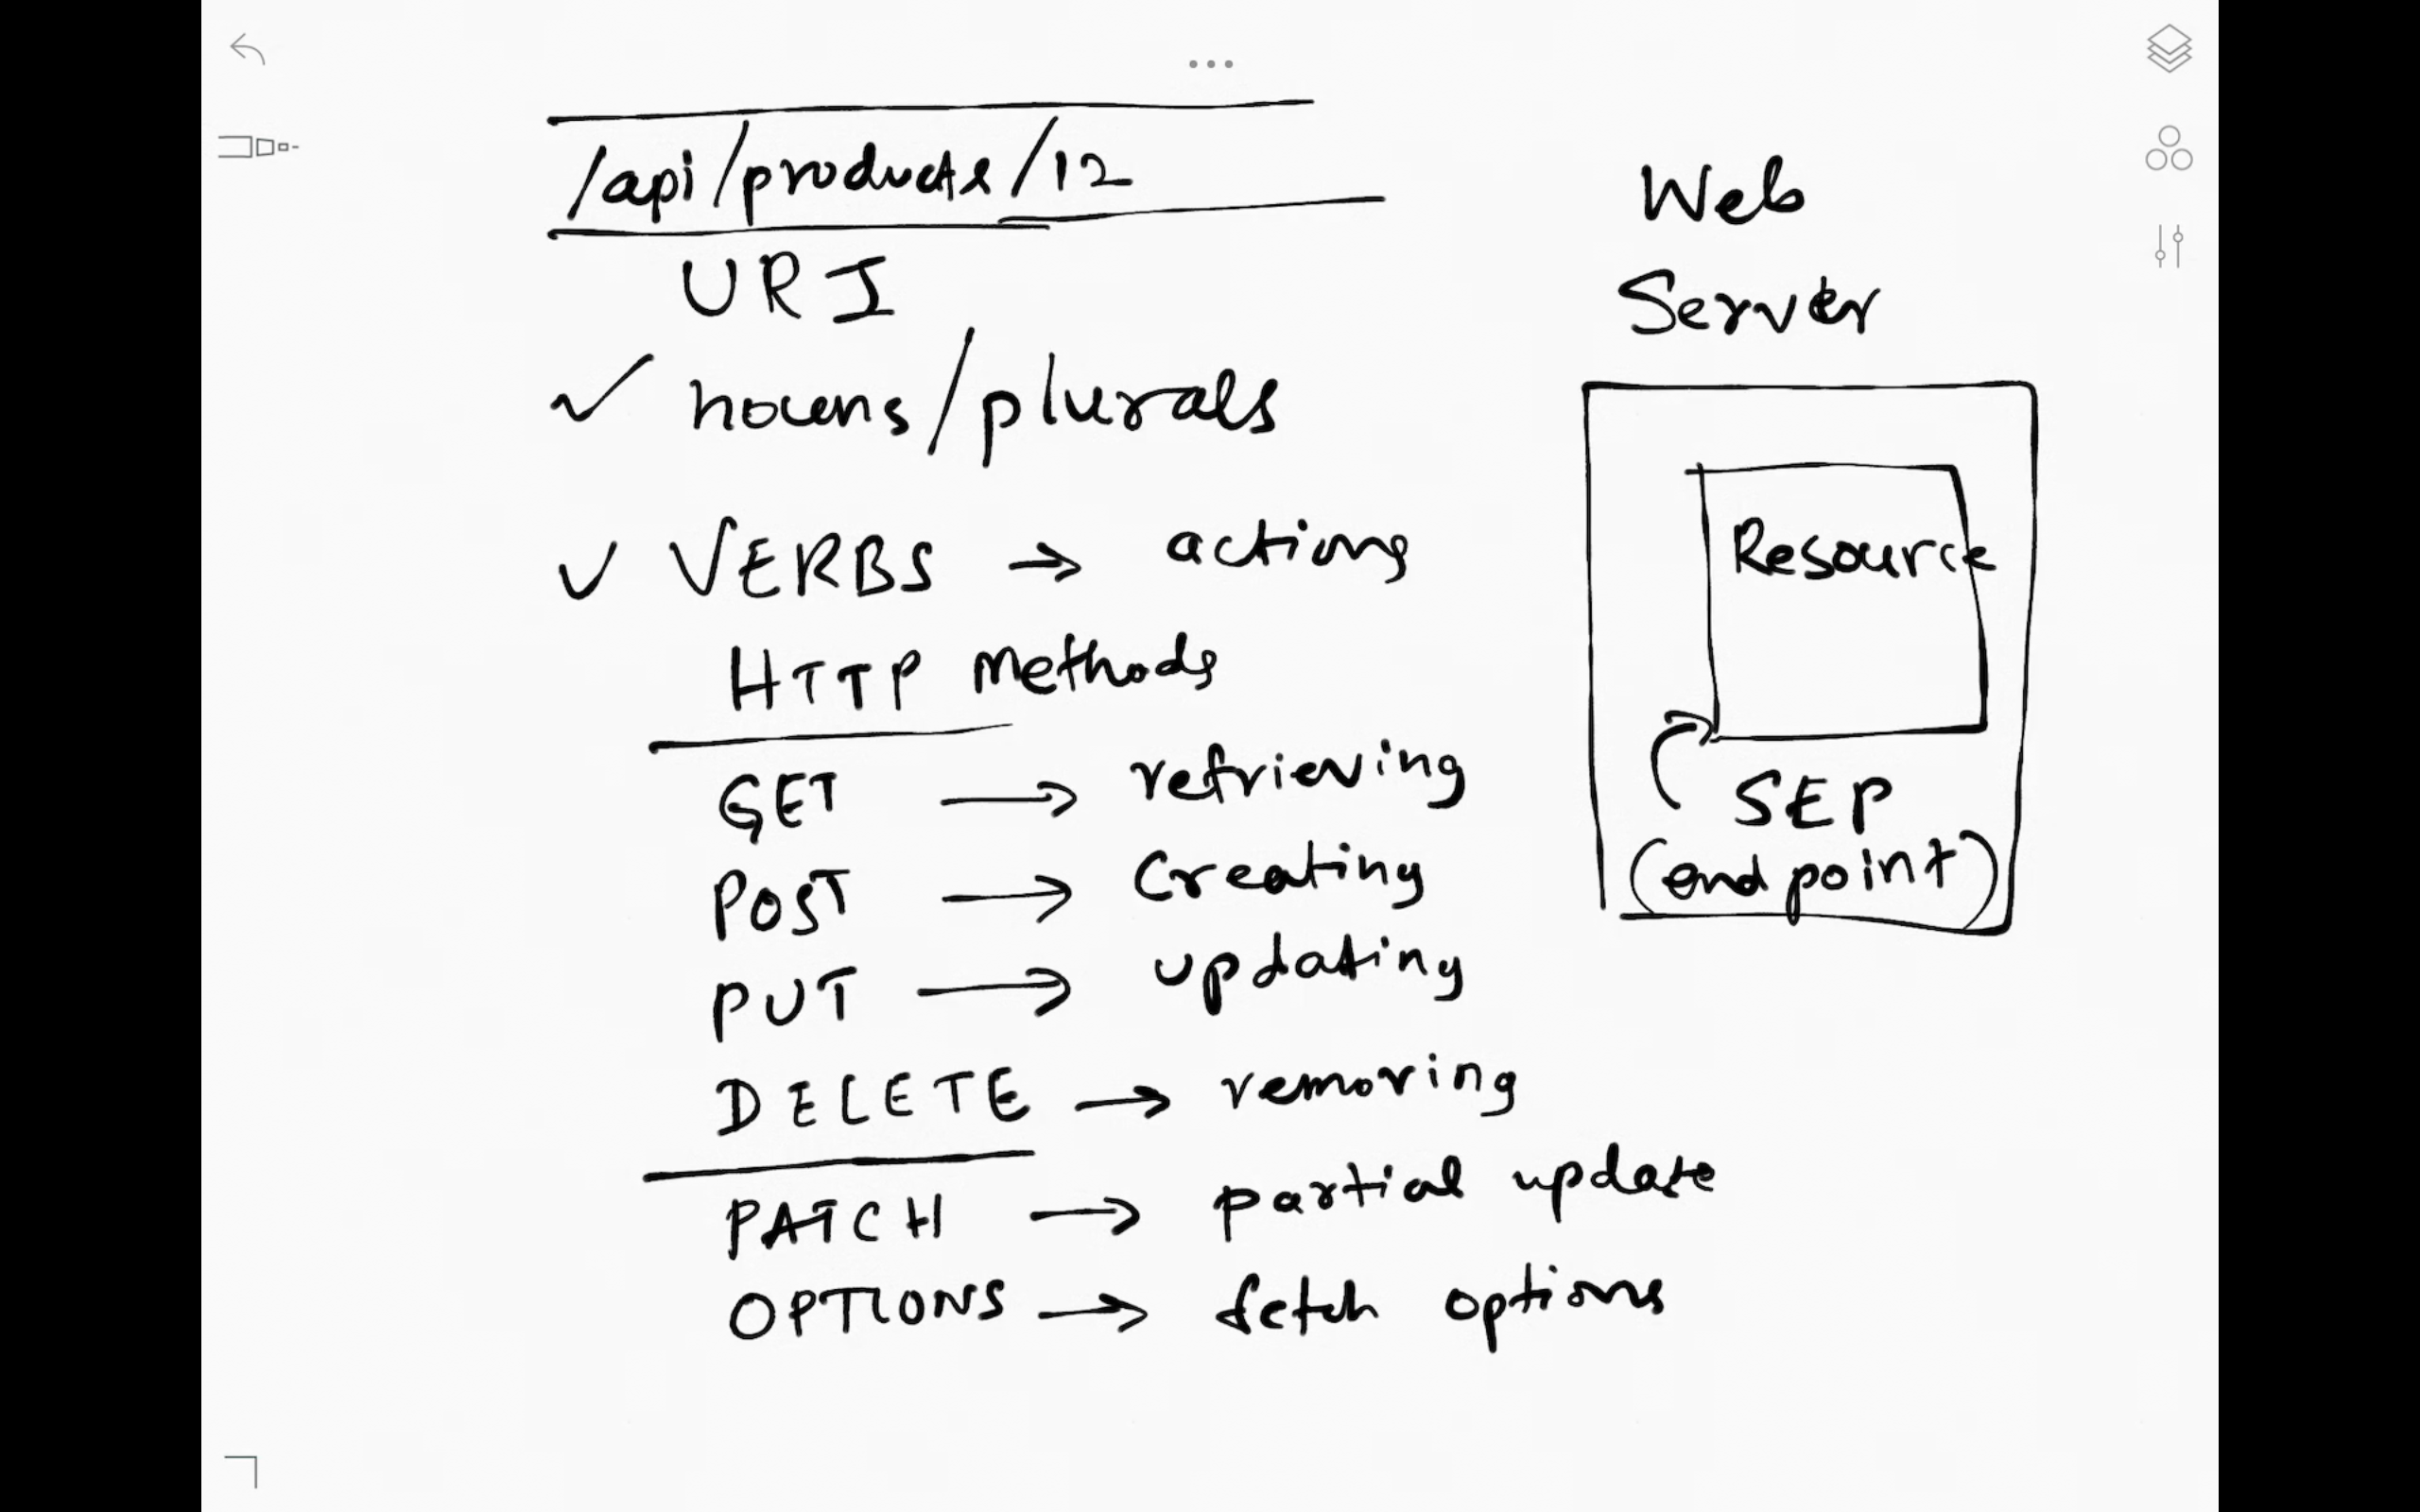 /api/products/12
URI
nouns/plurals
VERBS → actions
HTTP Methods
GET → retrieving
POST → Creating
PUT → updating
DELETE → removing
PATCH → partial update
OPTIONS → fetch options
Web
Server
Resource
SEP
(end point)